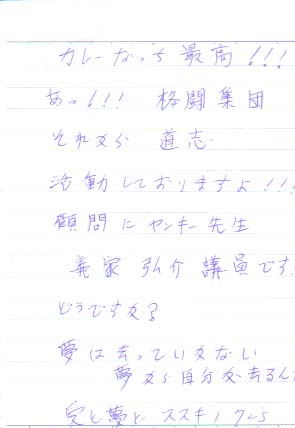 カレーなっち 最高!!!
あっ!!! 格闘集団
それから 道志.
活動しておりますよ!!!
顧問に ヤンキー先生
義家 弘介 講員です!
どうですか?
夢は去っていかない
夢から自分が去るん
愛と夢と ススキノ